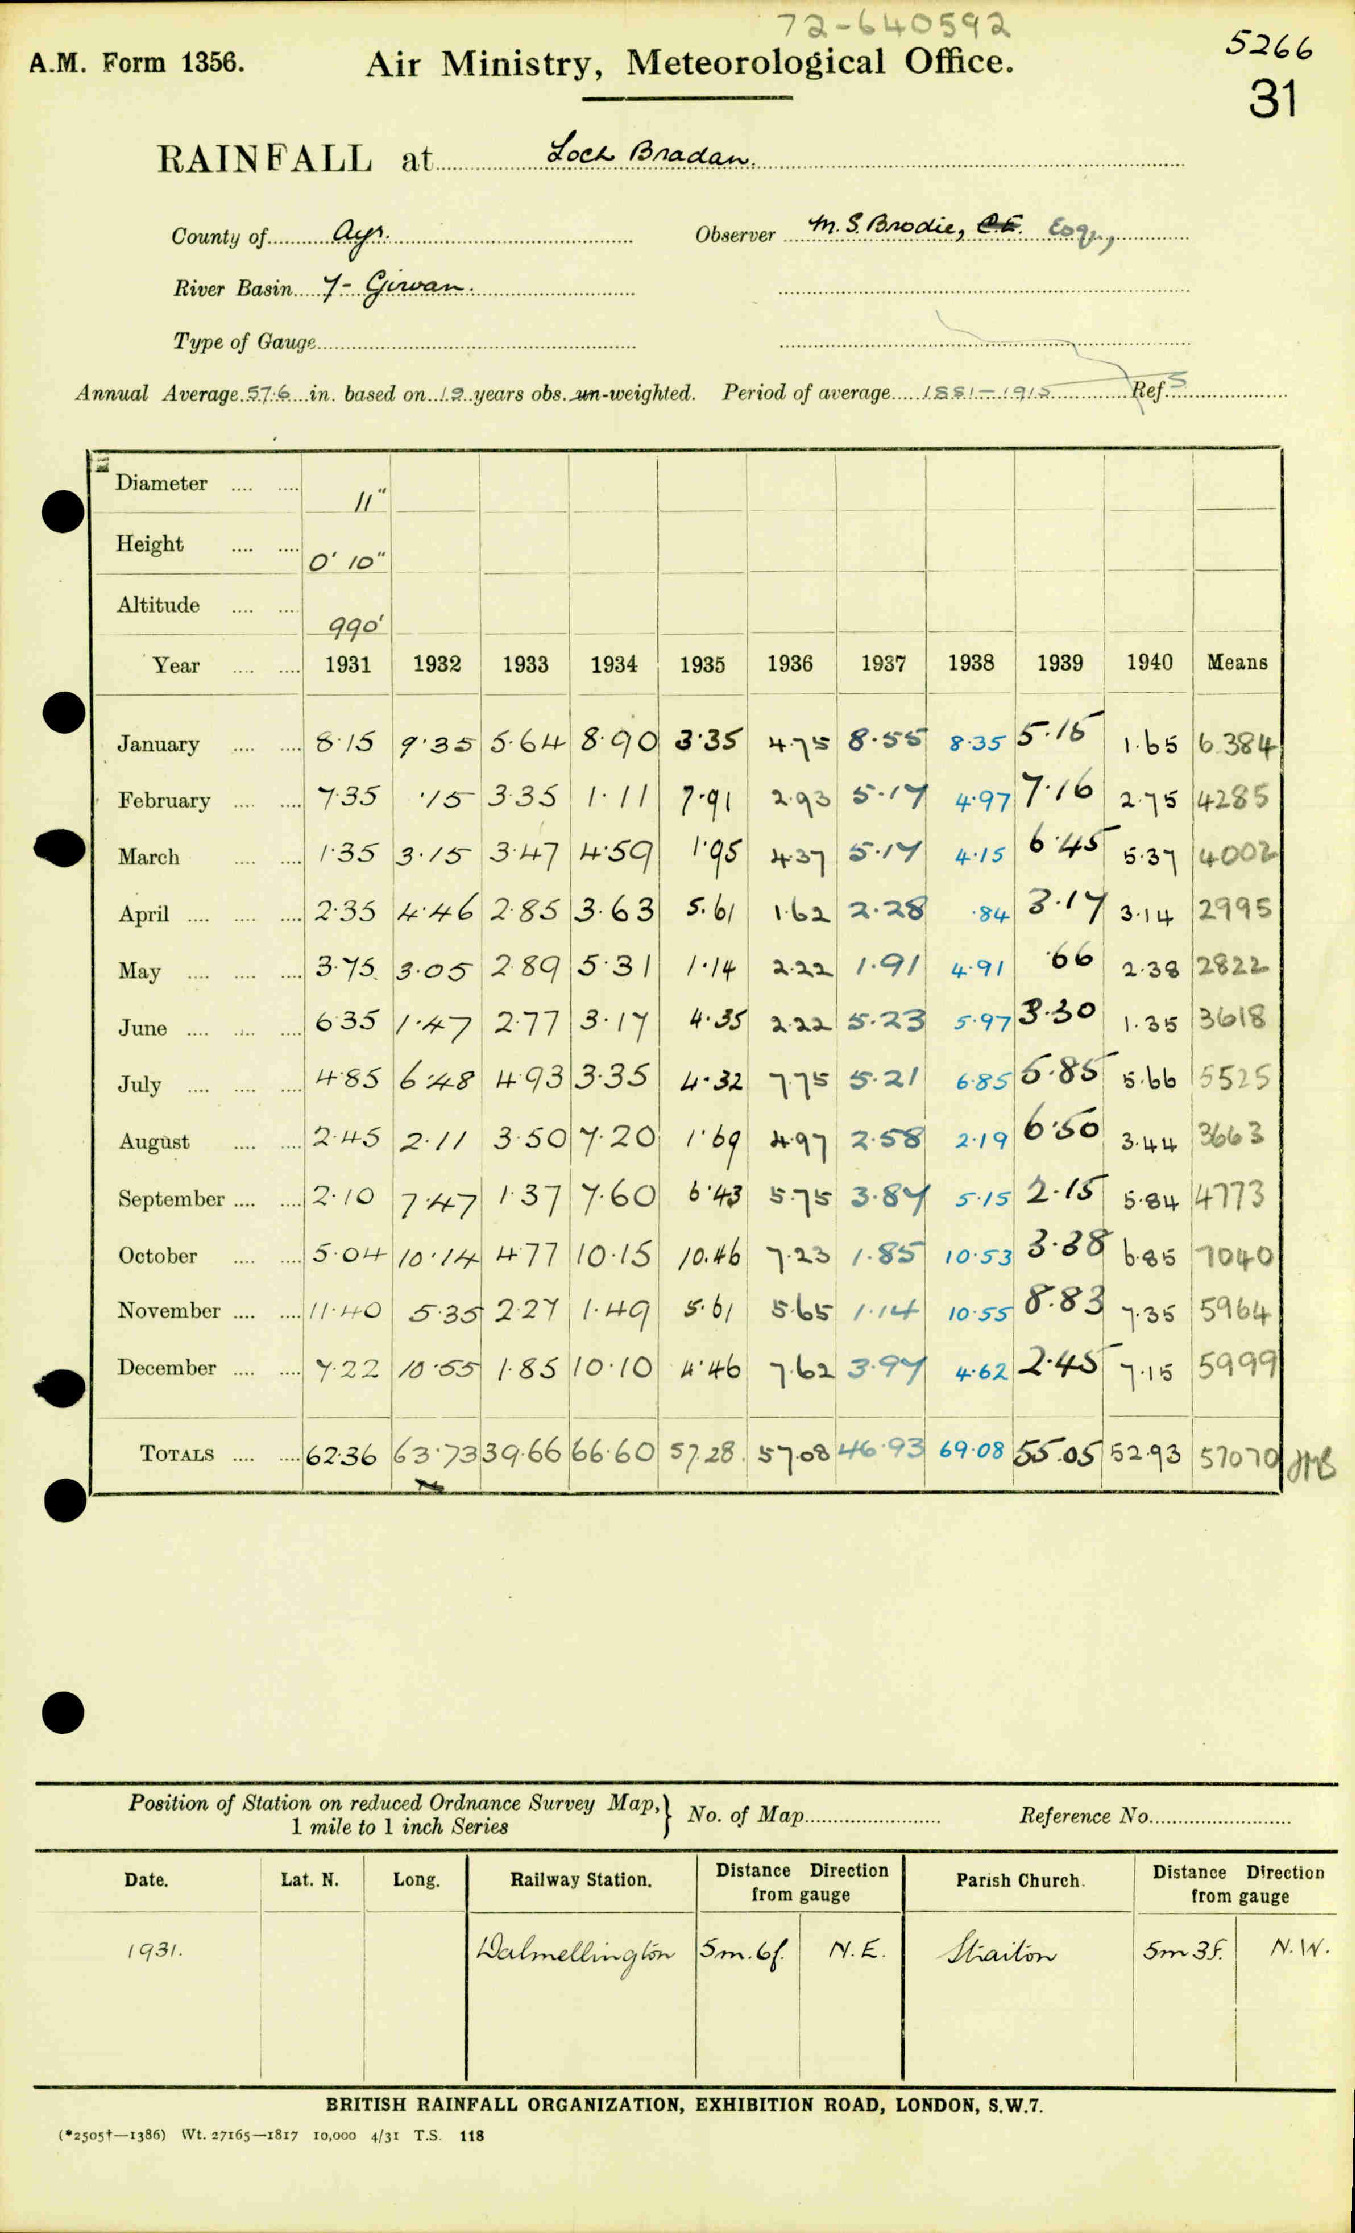 72-640592
5266
A.M. Form 1356. Air Ministry, Meteorological Office.
31
RAINFALL at Loch Bradan.
County of Ayr. Observer M. S. Brodie, C.E. Esq.,
River Basin 7- Girvan.
Type of Gauge
Annual Average 57.6 in. based on 19 years obs. un-weighted. Period of average 1881-1915 Ref. S
Diameter .... .... 11"
Height .... .... 0' 10"
Altitude .... .... 990'
Year .... .... 1931 1932 1933 1934 1935 1936 1937 1938 1939 1940 Means
January .... .... 8.15 9.35 5.64 8.90 3.35 4.75 8.55 8.35 5.15 1.65 6.384
February .... .... 7.35 .15 3.35 1.11 7.91 2.93 5.17 4.97 7.16 2.75 4285
March .... .... 1.35 3.15 3.47 4.59 1.95 4.37 5.17 4.15 6.45 5.37 4002
April .... .... .... 2.35 4.46 2.85 3.63 5.61 1.62 2.28 .84 3.17 3.14 2995
May .... .... .... 3.75 3.05 2.89 5.31 1.14 2.22 1.91 4.91 .66 2.38 2822
June .... .... .... 6.35 1.47 2.77 3.17 4.35 2.22 5.23 5.97 3.30 1.35 3618
July .... .... .... 4.85 6.48 4.93 3.35 4.32 7.75 5.21 6.85 5.85 5.66 5525
August .... .... 2.45 2.11 3.50 7.20 1.69 4.97 2.58 2.19 6.50 3.44 3663
September .... .... 2.10 7.47 1.37 7.60 6.43 5.75 3.87 5.15 2.15 5.84 4773
October .... .... 5.04 10.14 4.77 10.15 10.46 7.23 1.85 10.53 3.38 6.85 7040
November .... .... 11.40 5.35 2.27 1.49 5.61 5.65 1.14 10.55 8.83 7.35 5964
December .... .... 7.22 10.55 1.85 10.10 4.46 7.62 3.97 4.62 2.45 7.15 5999
TOTALS .... .... 62.36 63.73 39.66 66.60 57.28 57.08 46.93 69.08 55.05 52.93 57070
Position of Station on reduced Ordnance Survey Map, } No. of Map Reference No.
1 mile to 1 inch Series
Date. Lat. N. Long. Railway Station. Distance Direction from gauge Parish Church. Distance Direction from gauge
1931. Dalmellington 5m. 6f. N.E. Straiton 5m 3f. N.W.
BRITISH RAINFALL ORGANIZATION, EXHIBITION ROAD, LONDON, S.W.7.
(*2505†—1386) Wt. 27165—1817 10,000 4/31 T.S. 118